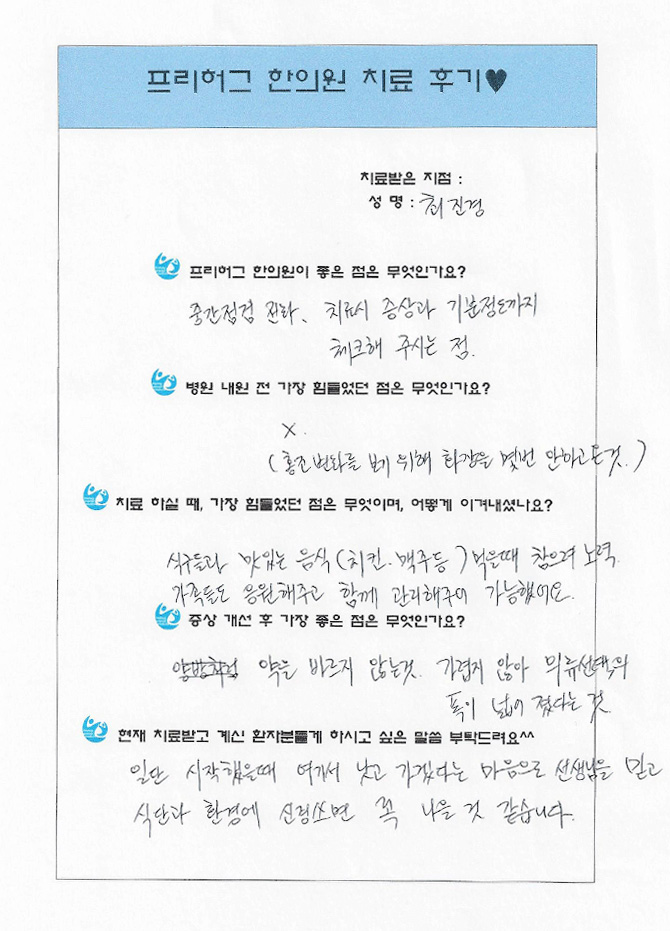 프리허그 한의원 치료 후기♥
치료받은 지점 :
성 명 : 최진경
프리허그 한의원이 좋은 점은 무엇인가요?
중간점검 진료, 치료시 증상과 기분정도까지
체크해 주시는 점.
병원 내원 전 가장 힘들었던 점은 무엇인가요?
X.
(홍조변화를 보기 위해 화장을 몇번 안하고 온것.)
치료 하실 때, 가장 힘들었던 점은 무엇이며, 어떻게 이겨내셨나요?
식구들과 맛있는 음식(치킨.맥주등)먹을때 참으려 노력.
가족들도 응원해주고 함께 관리해주어 가능했어요.
증상 개선 후 가장 좋은 점은 무엇인가요?
약을 바르지 않는것. 가렵지 않아 의류선택의
폭이 넓어 졌다는 것.
현재 치료받고 계신 환자분들게 하시고 싶은 말씀 부탁드려요^^
일단 시작했을때 여기서 낫고 가겠다는 마음으로 선생님을 믿고
식단과 환경에 신경쓰면 꼭 나을 것 같습니다.